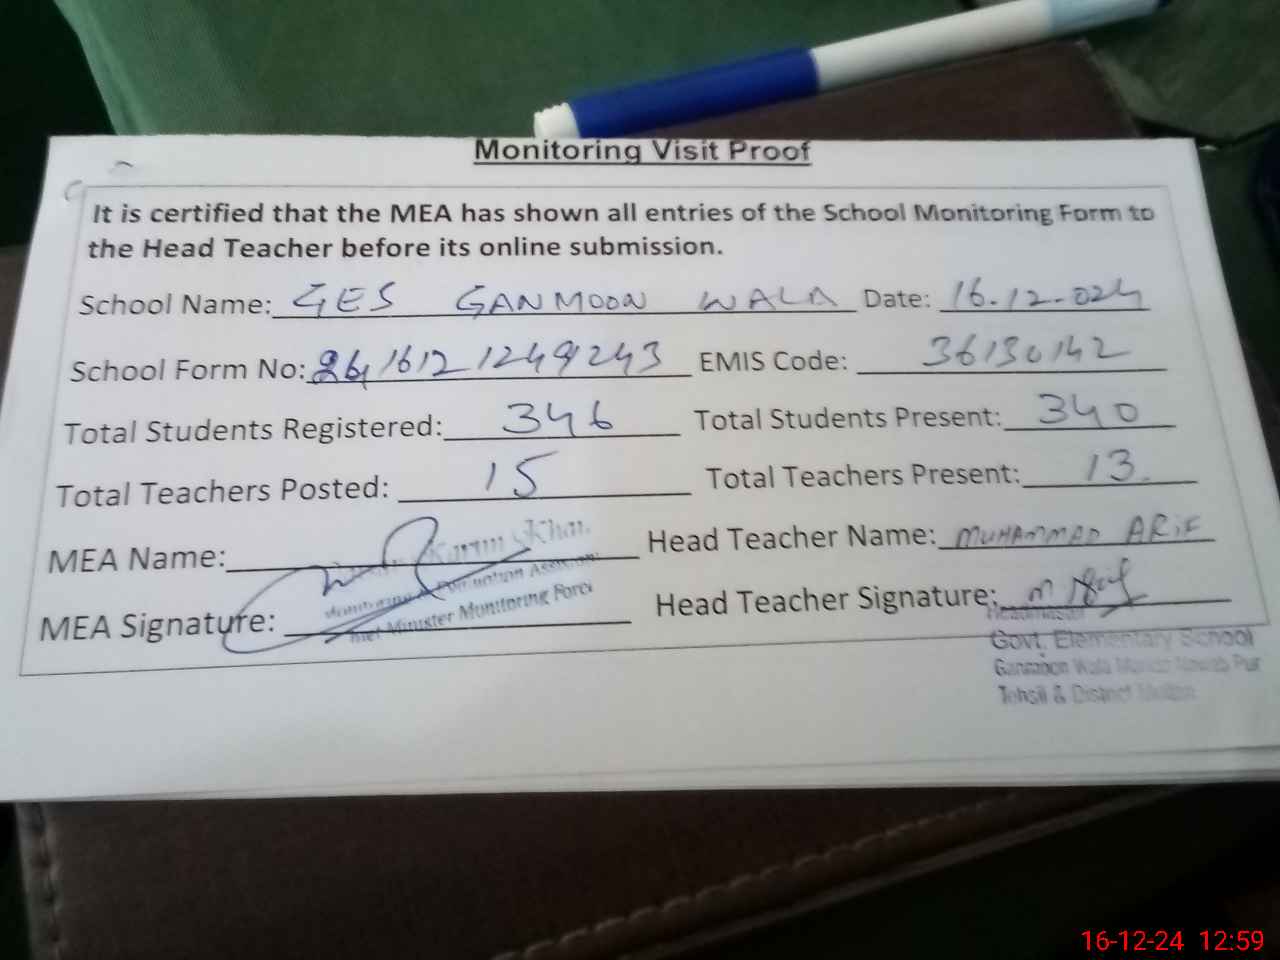 Monitoring Visit Proof
It is certified that the MEA has shown all entries of the School Monitoring Form to
the Head Teacher before its online submission.
School Name: GES GANMOON WALA Date: 16.12.024
School Form No: 1612 1249243 EMIS Code: 36130142
Total Students Registered: 346 Total Students Present: 340
Total Teachers Posted: 15 Total Teachers Present: 13
MEA Name: Karim Khan Head Teacher Name: MUHAMMAD ARIF
Monitoring & Assistant
MEA Signature: Minister Monitoring Force Head Teacher Signature: M Arif
Headmaster
Govt. Elementary School
Wala Nawab Pur
Tehsil & District Multan
16-12-24 12:59